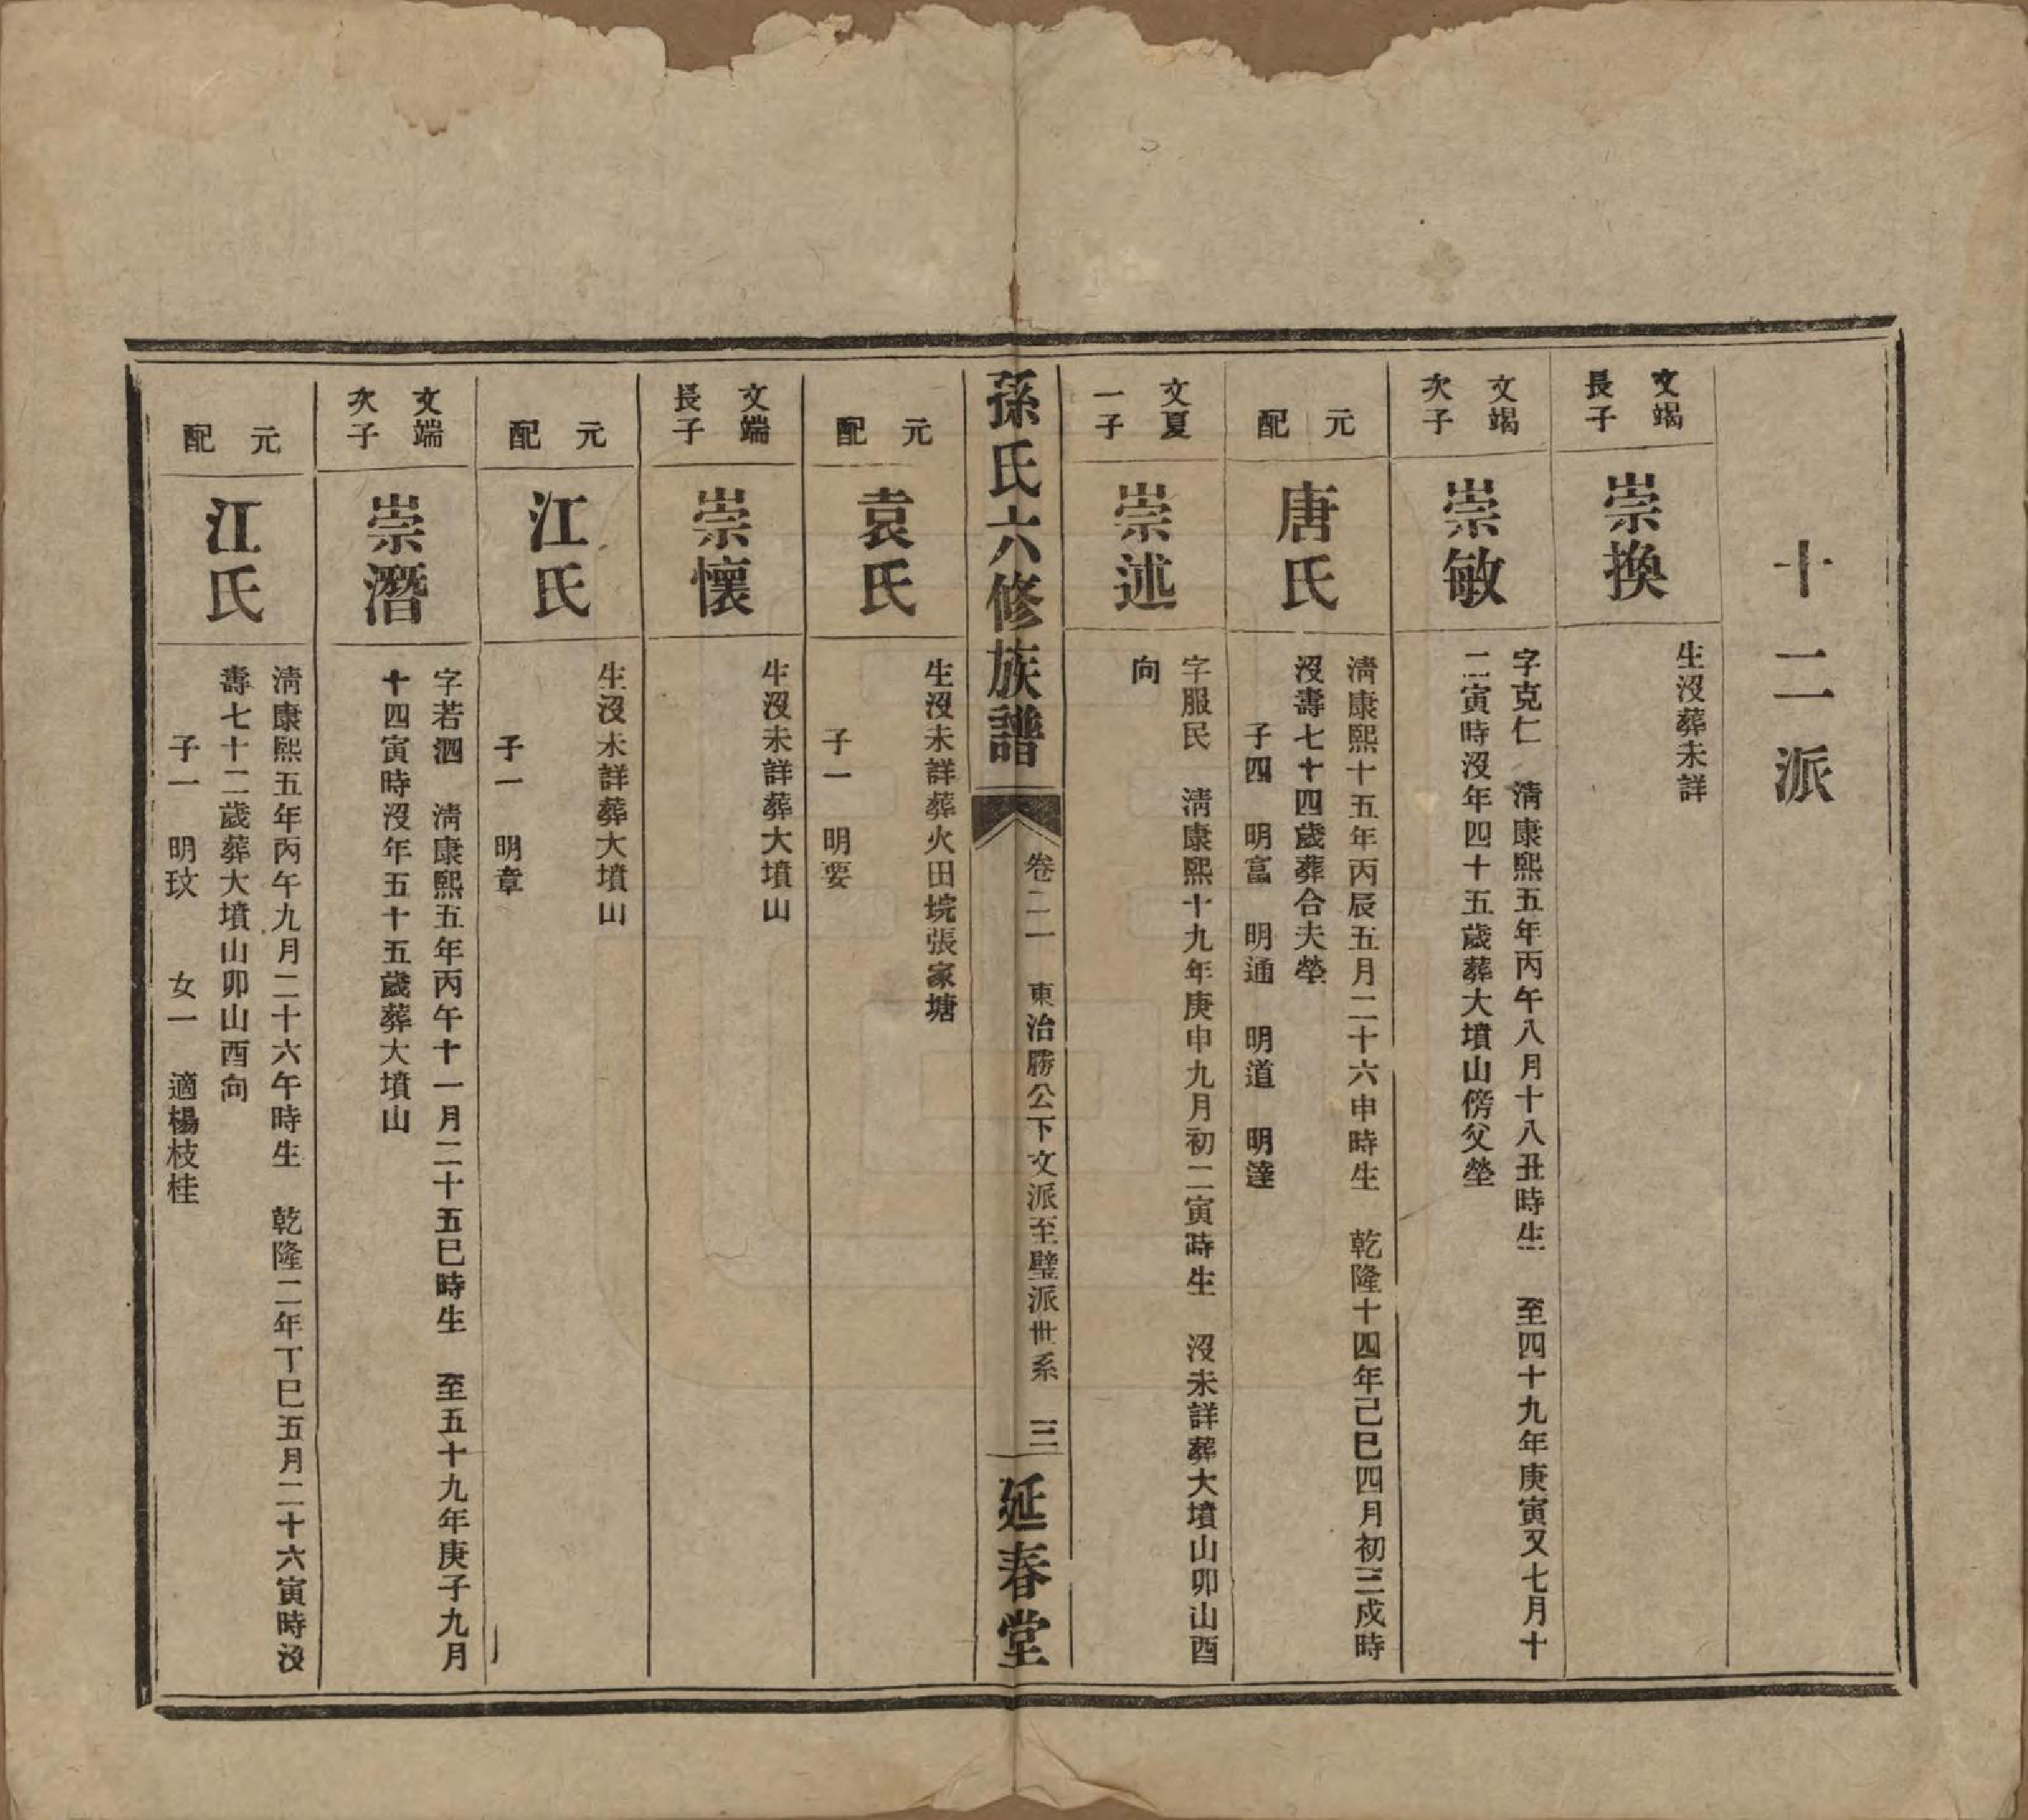 十二派
文竭
長子
崇換
生沒葬未詳
文竭
次子
崇敏
字克仁　淸康熙五年丙午八月十八丑時生　至四十九年庚寅又七月十
二寅時沒年四十五歲葬大墳山傍父塋
元
配
唐氏
淸康熙十五年丙辰五月二十六申時生　乾隆十四年己巳四月初三戍時
沒壽七十四歲葬合夫塋
子四　明富　明通　明道　明達
文夏
一子
崇述
字服民　淸康熙十九年庚申九月初二寅時生　沒未詳葬大墳山卯山酉
向
孫氏六修族譜
卷二一　東治勝公下文派至璧派世系　三
延春堂
元
配
袁氏
生沒未詳葬火田垸張家塘
子一　明要
文端
長子
崇懷
生沒未詳葬大墳山
元
配
江氏
生沒未詳葬大墳山
子一　明章
文端
次子
崇潛
字若泗　淸康熙五年丙午十一月二十五巳時生　至五十九年庚子九月
十四寅時沒年五十五歲葬大墳山
元
配
江氏
淸康熙五年丙午九月二十六午時生　乾隆二年丁巳五月二十六寅時沒
壽七十二歲葬大墳山卯山酉向
子一　明玟　女一　適楊枝桂